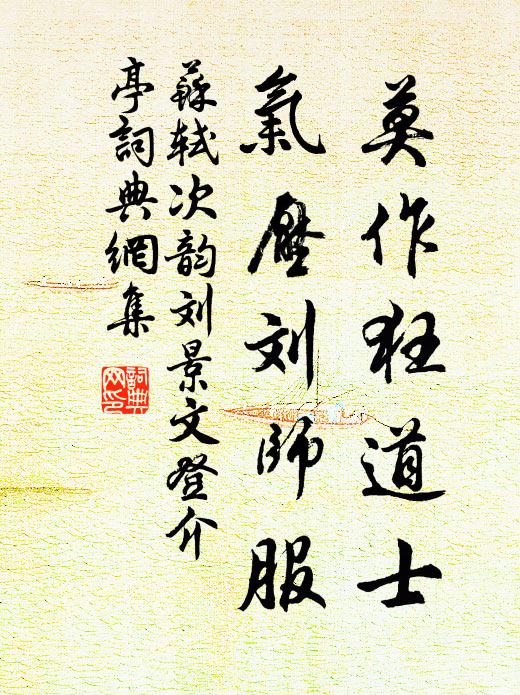 莫作狂道士
氣壓刘師服
蘇軾次韵刘景文登介
亭詞典網集
詞典
网印